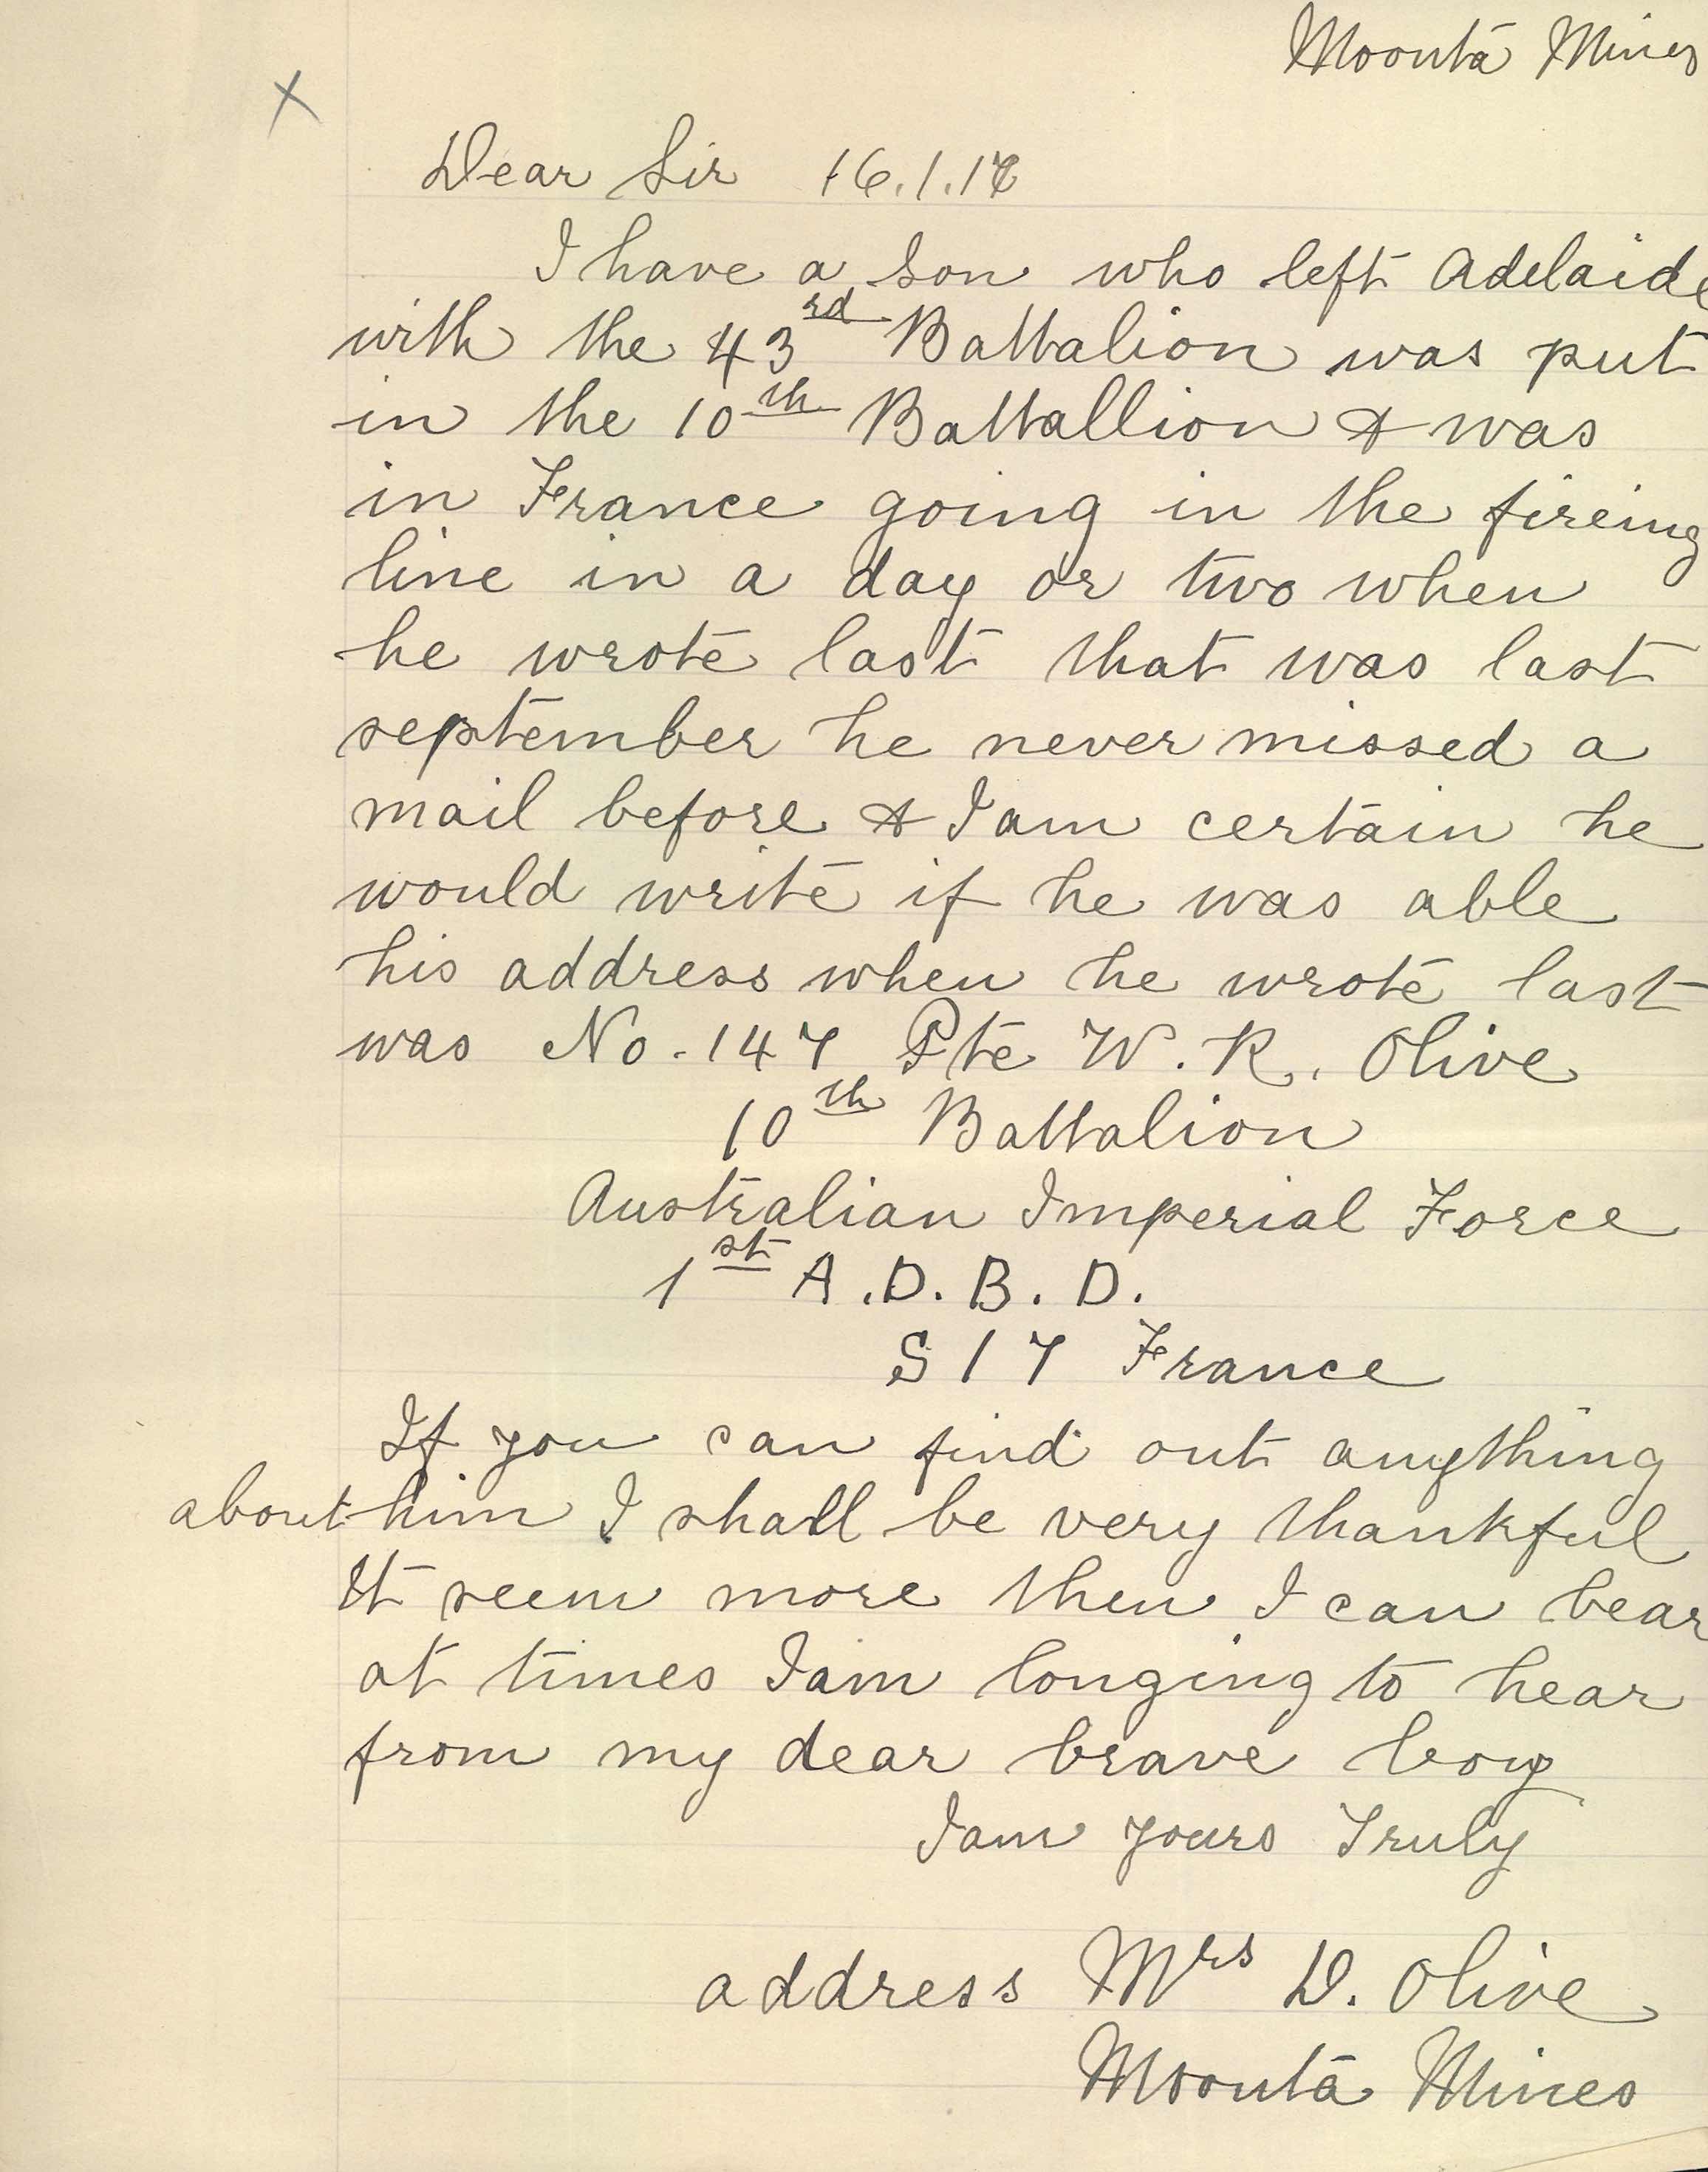 Moonta Mines
X
Dear Sir 16.1.17
I have a son who left Adelaide
with the 43rd Battalion was put
in the 10th Battallion & was
in France going in the fireing
line in a day or two when
he wrote last that was last
september he never missed a
mail before & I am certain he
would write if he was able
his address when he wrote last
was No. 147 Pte W. R. Olive
10th Battalion
Australian Imperial Force
1st A.D.B.D.
S 17 France
If you can find out anything
about him I shall be very thankful
It seem more then I can bear
at times I am longing to hear
from my dear brave boy
I am yours Truly
address Mrs D. Olive
Moonta Mines